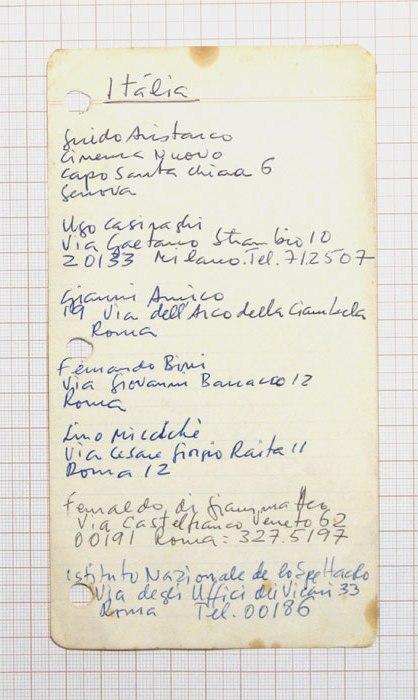 Itália
Guido Aristarco
Cinema Nuovo
Capo Santa Chiara 6
Genova
Ugo Casiraghi
Via Gaetano Strambio 10
20133 Milano. Tel. 712507
Gianni Amico
19 Via dell'Arco della Ciambella
Roma
Fernando Birri
Via Giovanni 12
Roma
Lino Miccichè
Via Cesare Giorgio 11
Roma 12
Fernaldo di Giammatteo
Via Castelfranco Veneto 62
00191 Roma: 327.5197
Istituto Nazionale de lo Spettacolo
Via degli Uffici del Vicari 33
Roma Tel. 00186